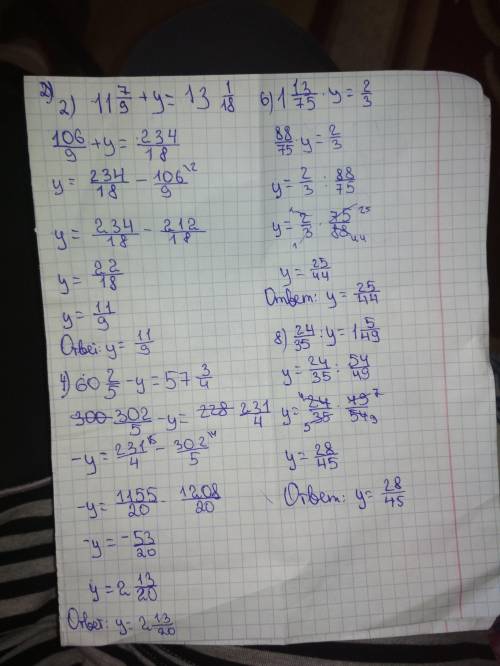 2)
2) 11 7/9 + y = 13 1/18
106/9 + y = 234/18
y = 234/18 - 106/9 ^(·2
y = 234/18 - 212/18
y = 22/18
y = 11/9
Ответ: y = 11/9
4) 60 2/5 - y = 57 3/4
300 302/5 - y = 228 231/4
-y = 231/4 ^(5 - 302/5 ^(4
-y = 1155/20 - 1208/20
-y = -53/20
y = 2 13/20
Ответ: y = 2 13/20
6) 1 13/75 · y = 2/3
88/75 · y = 2/3
y = 2/3 : 88/75
y = 2/3 · 75/88 1 1 25 44
y = 25/44
Ответ: y = 25/44
8) 24/35 : y = 1 5/49
y = 24/35 : 54/49
y = 24/35 · 49/54 4 5 7 9
y = 28/45
Ответ: y = 28/45